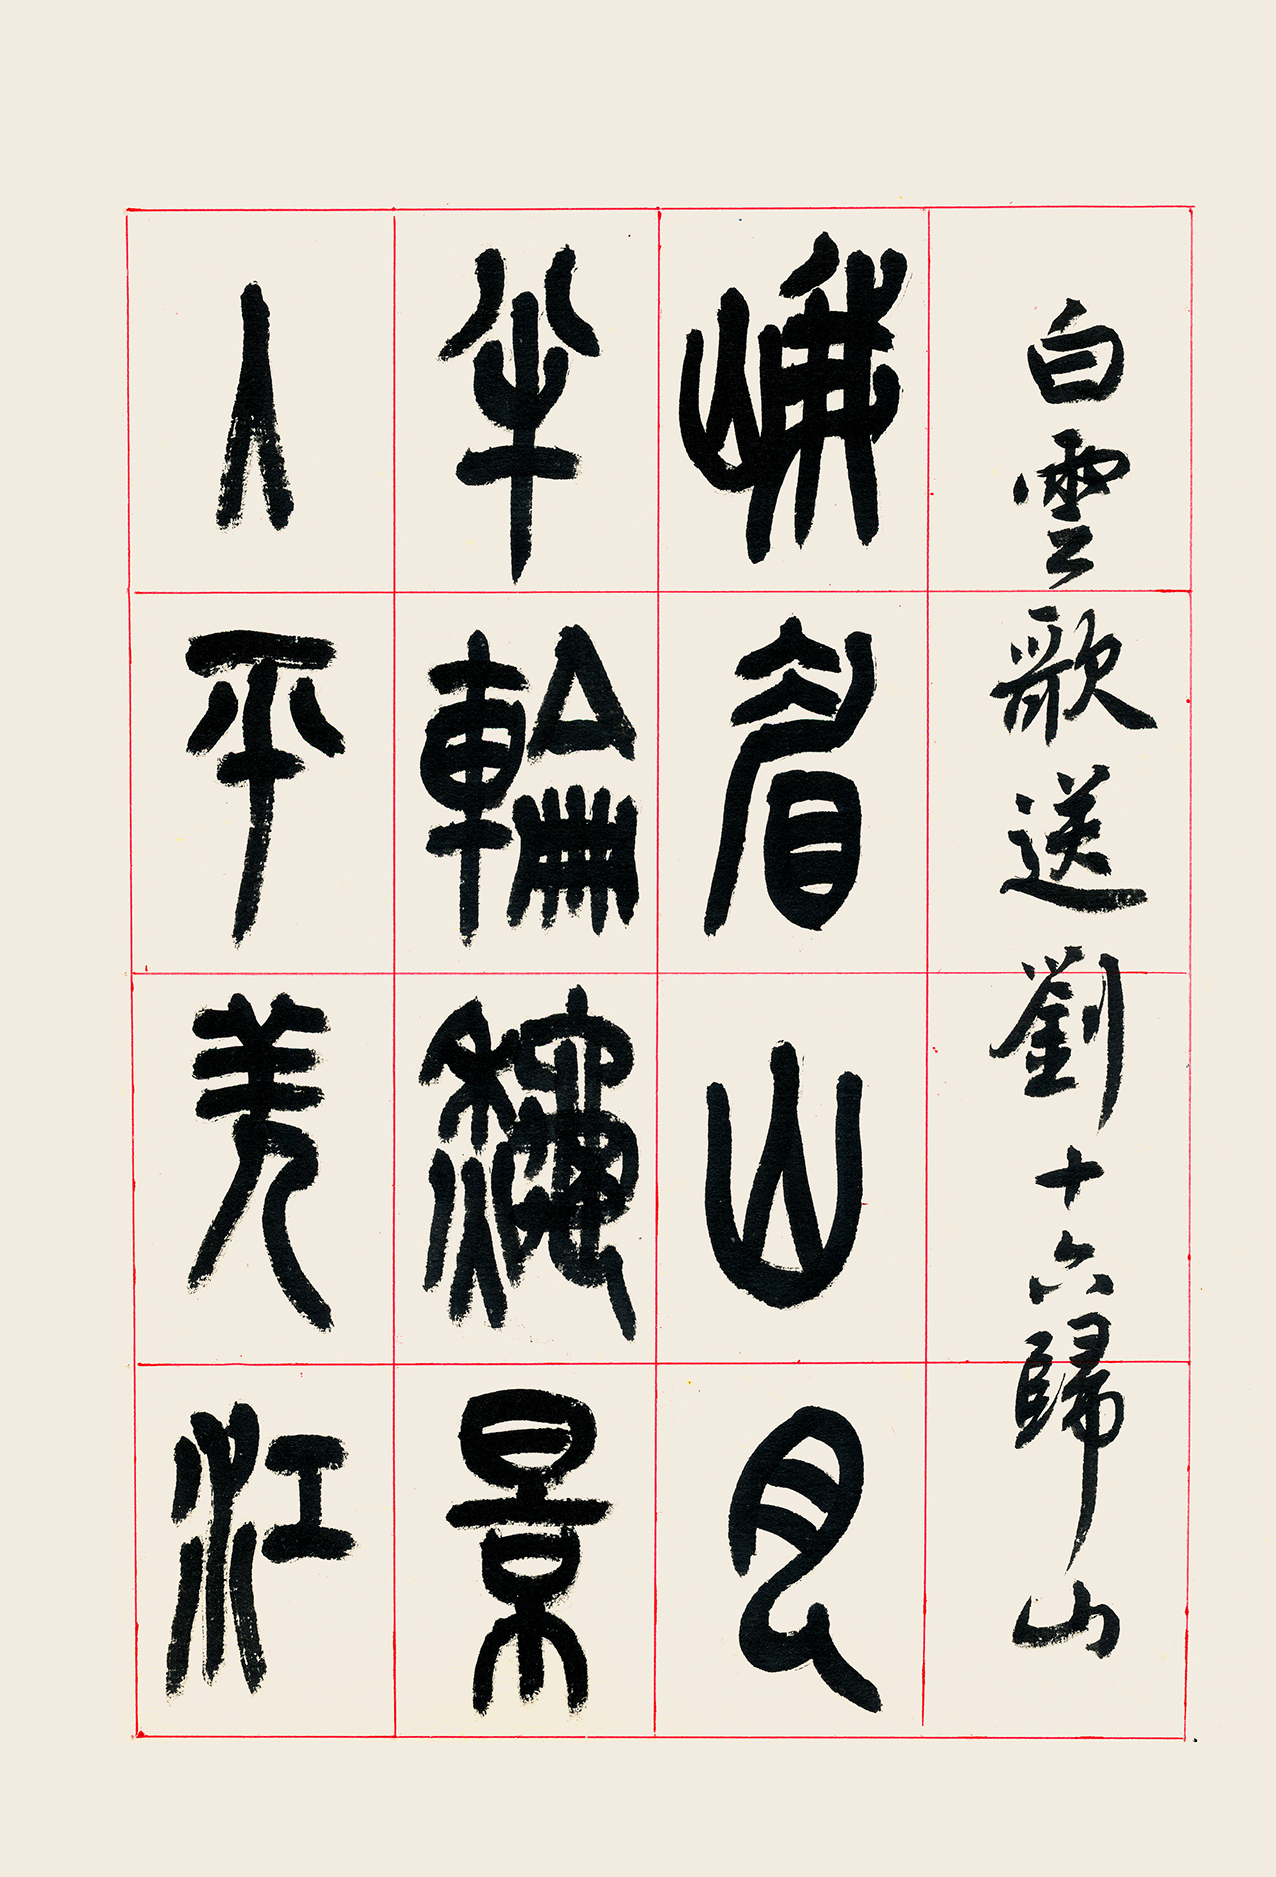 白雲歌送劉十六歸山
峨眉山月
半輪秋景
入平羌江